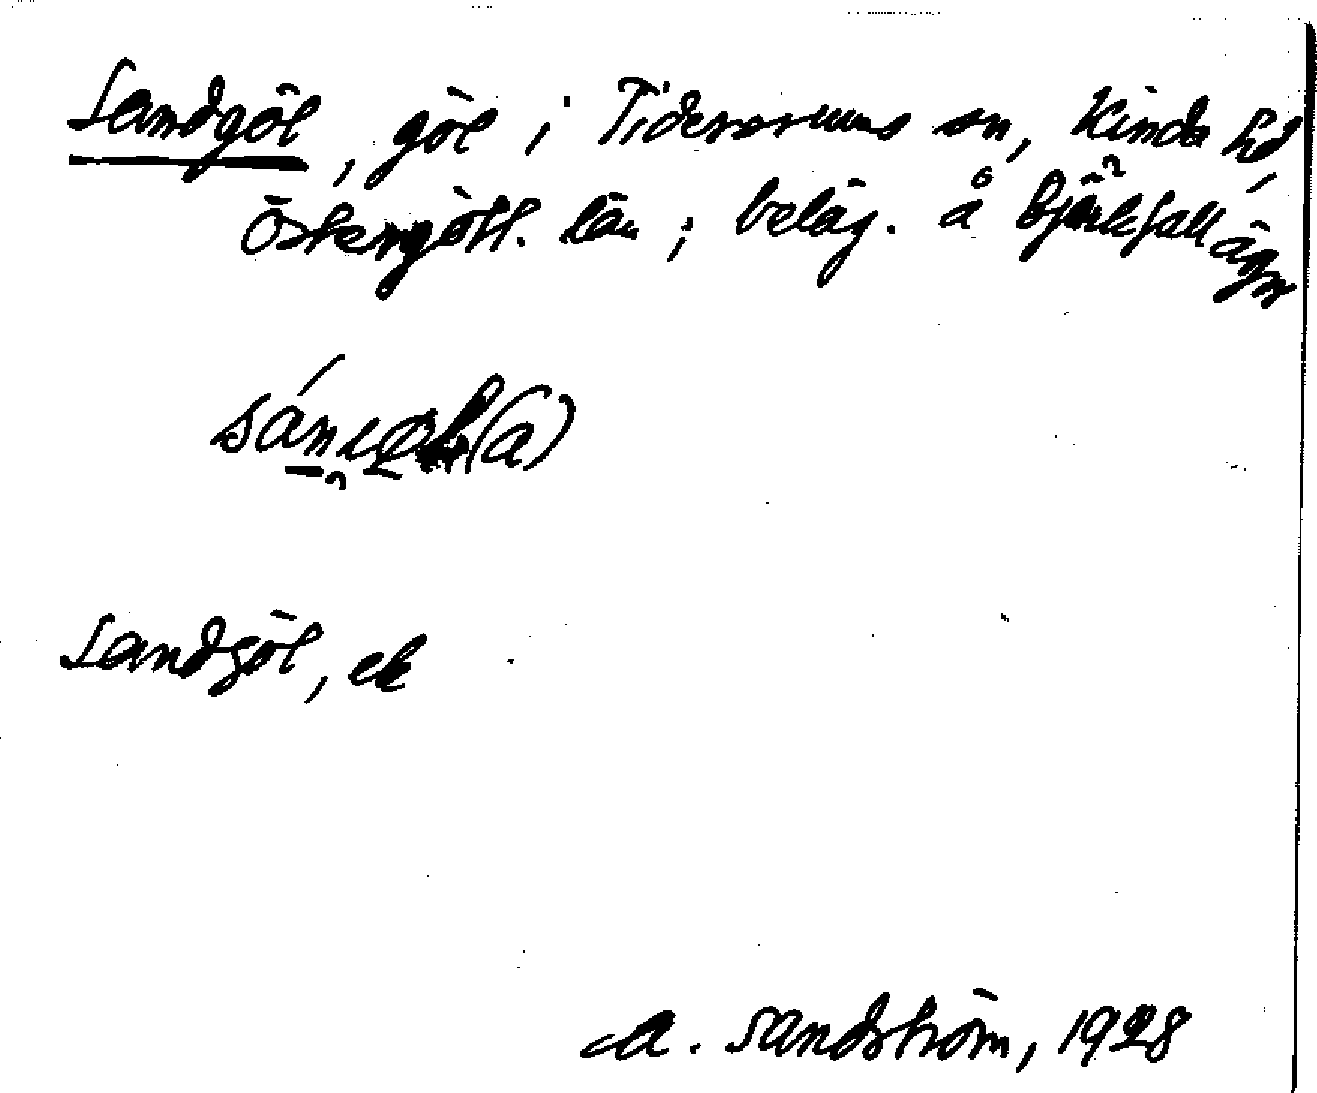 Sandgöl, göl i Tidersrums sn, Kinda hd,
Östergötl. län; beläg. å Björkfall ägor
Sandgöl, ek
A. Sandström, 1928